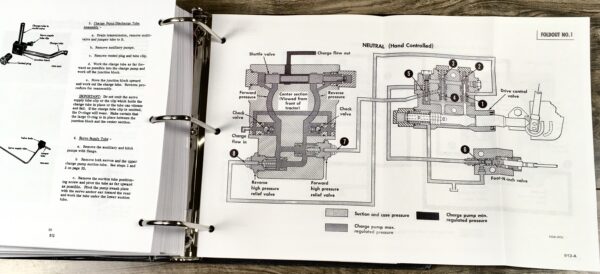 b. Charge Pump/Discharge Tube
Assembly -
a. Drain transmission, remove multi-
valve and jumper tube to it.
b. Remove auxiliary pumps.
c. Remove coated plug and tube clip.
d. Work the charge tube as far for-
ward as possible into the charge pump and
work off the junction block.
e. Move the junction block upward
and work out the charge tube. Reverse pro-
cedure for reassembly.
IMPORTANT: Do not omit the servo
supply tube clip or the clip which holds the
charge tube in place or the tube can vibrate
and fail. If the charge tube fit is omitted,
the O-rings will wear. Make certain that
the large O-ring is in place between the
junction block and the center section.
c. Servo Supply Tube -
a. Remove the auxiliary and hitch
pumps with flange.
b. Remove
c. Remove the suction tube position-
ing screw and pivot the tube as far upward
as possible. Pivot the pump swash plate
with the servo anchor ear toward the rear
and work the tube under the lower suction
tube.
FOLDOUT NO. 1
NEUTRAL (Hand Controlled)
Shuttle valve
Charge flow out
Forward
pressure
Center section
(Viewed from
front of
tractor)
Reverse
pressure
Check
valve
Check
valve
Charge
flow in
8
7
Reverse
high pressure
relief valve
Forward
high pressure
relief valve
5
3
2
4
1
Drive control
valve
6
Foot-N-Inch valve
Suction and case pressure
Charge pump min.
regulated pressure
Charge pump max.
regulated pressure
9/12-A